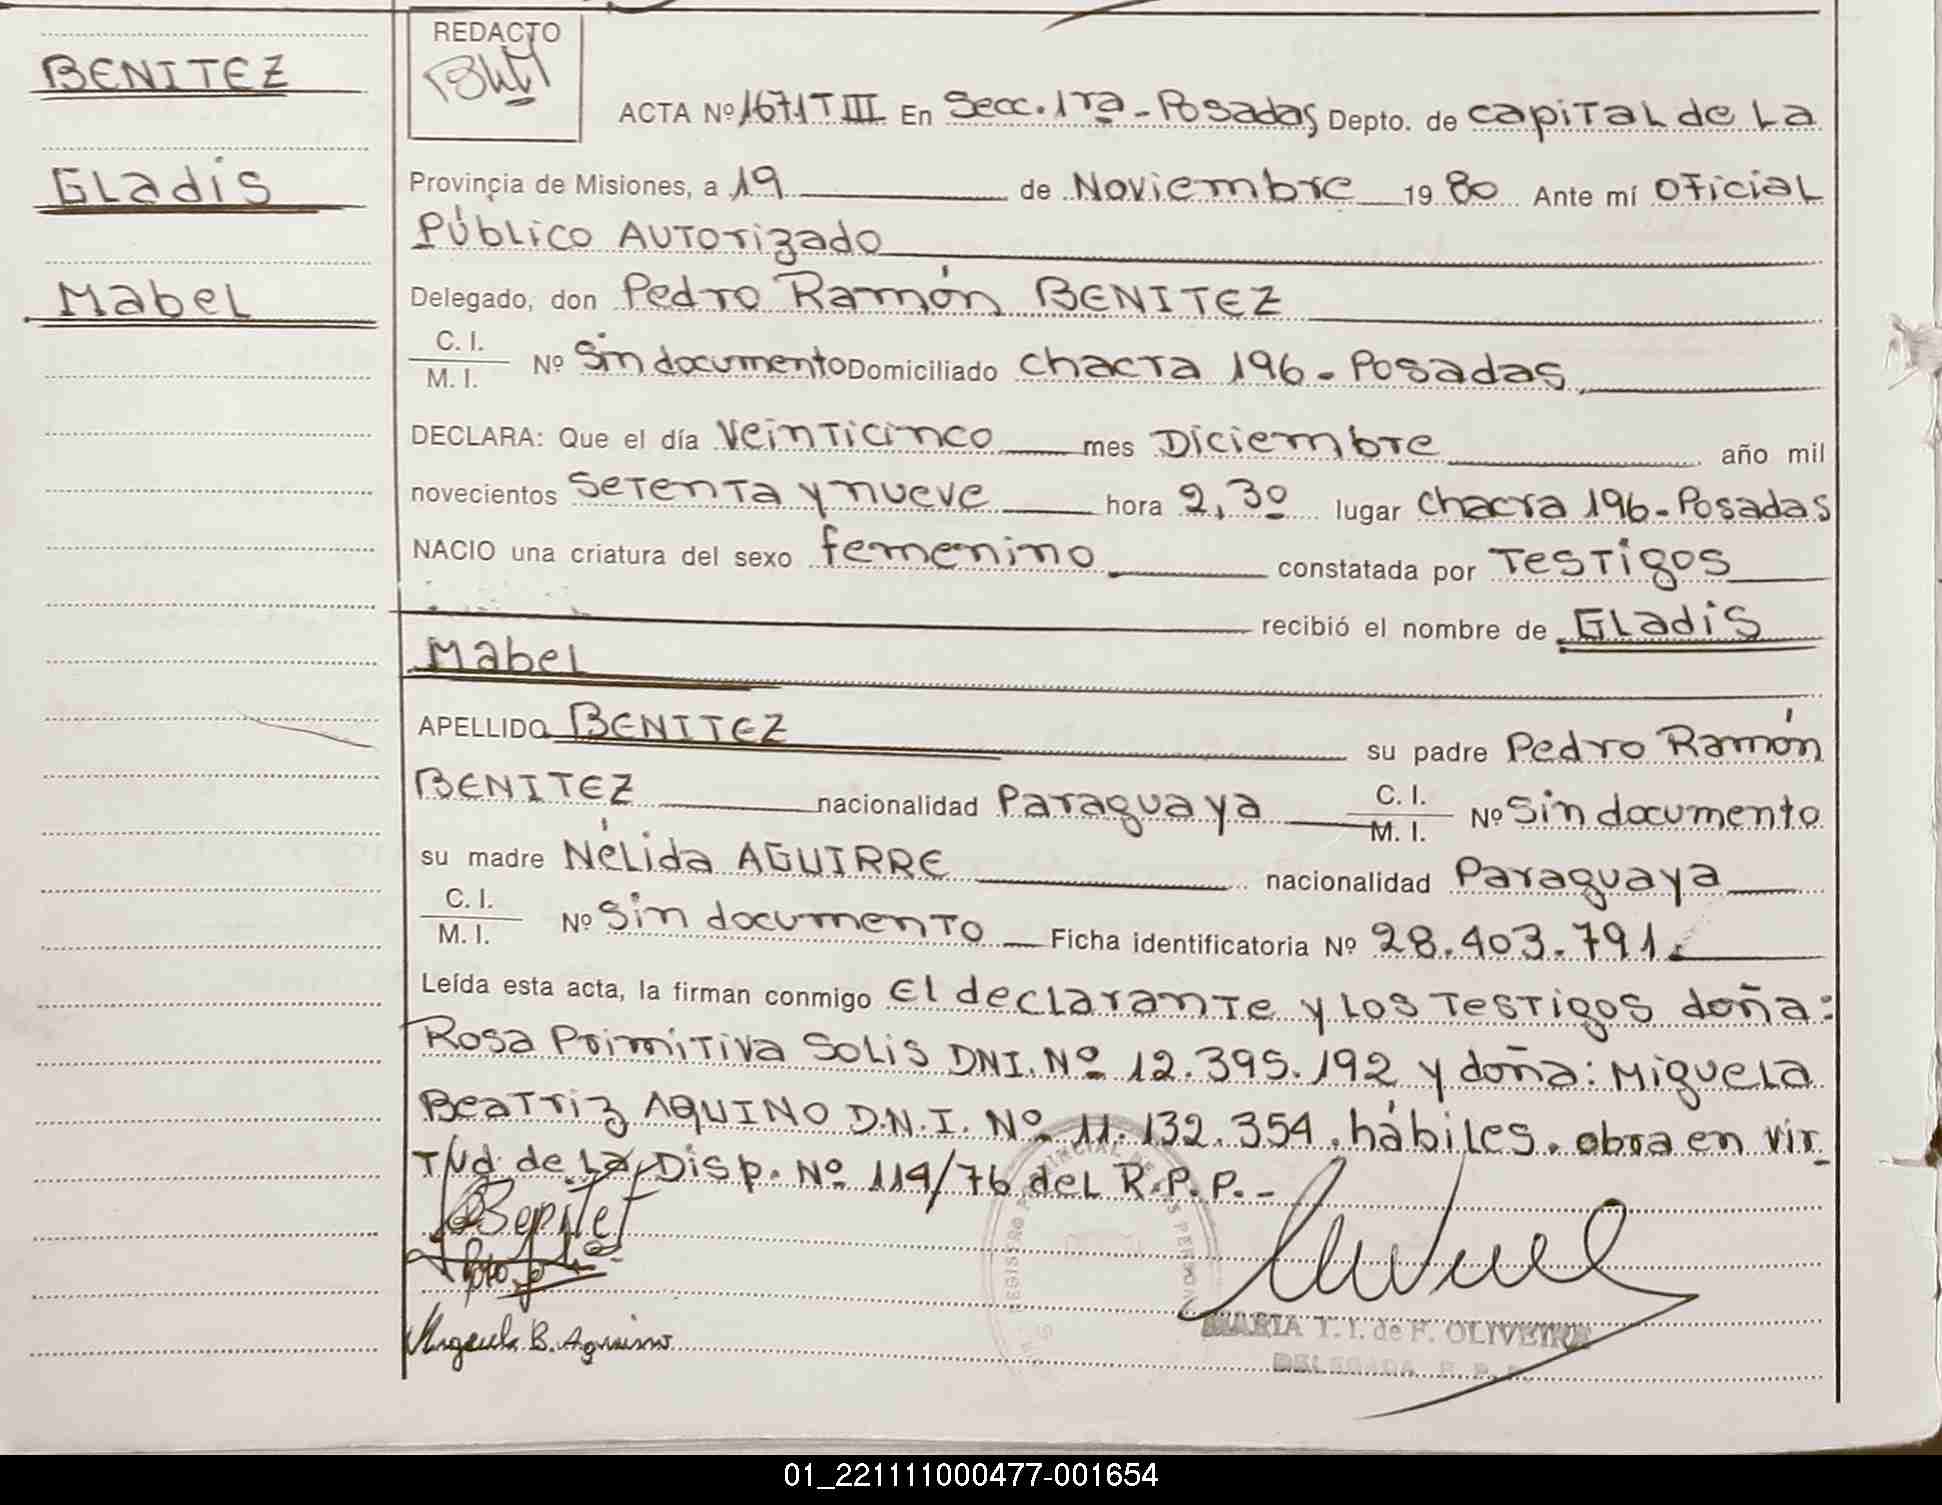 BENITEZ
GLadis
Mabel
REDACTO
ACTA Nº 1671 T III En Secc. 1ra - Posadas Depto. de capiTaL de La
Provincia de Misiones, a 19 de Noviembre 19 80 Ante mí OFiciaL
PúbLico AUTorizado
Delegado, don Pedro Ramón BENITEZ
C. I.
M. I.
Nº Sin documento Domiciliado chacra 196 - Posadas
DECLARA: Que el día VeinTicinco mes Diciembre año mil
novecientos SeTenTa y nueve hora 2,30 lugar chacra 196 - Posadas
NACIO una criatura del sexo femenino constatada por TesTigos
recibió el nombre de GLadis
Mabel
APELLIDO BENITEZ su padre Pedro Ramón
BENITEZ nacionalidad Paraguaya C. I. Nº Sin documento
M. I.
su madre NéLida AGUIRRE nacionalidad Paraguaya
C. I.
M. I.
Nº Sin documenTo Ficha identificatoria Nº 28.403.791.
Leída esta acta, la firman conmigo el decLaranTe y Los TesTigos doña:
Rosa PrimiTiva SoLis DNI. Nº 12.395.192 y doña: MigueLa
BeaTriz AQUINO D.N.I. Nº 11.132.354. hábiLes. obra en vir-
Tud de La Disp. Nº 114/76 deL R.P.P. -
B. Aquino
MARIA T. I. de F. OLIVEIRA
DELEGADA R. P. P.
01_221111000477-001654